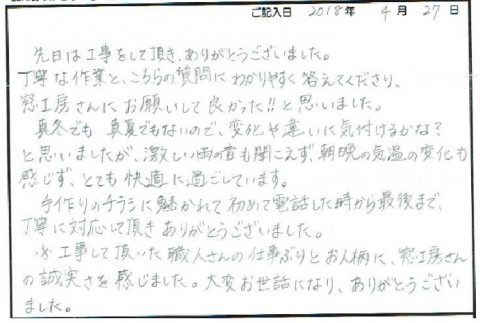 ご記入日 2018年 4月 27日
先日は工事をして頂き、ありがとうございました。
丁寧な作業と、こちらの質問にわかりやすく答えてくださり、
窓工房さんにお願いして良かった!!と思いました。
真冬でも真夏でもないので、変化や違いに気付けるかな?
と思いましたが、激しい雨の音も聞こえず、朝晩の気温の変化も
感じず、とても快適に過ごしています。
手作りのチラシに魅かれて初めて電話した時から最後まで、
丁寧に対応して頂きありがとうございました。
※工事して頂いた職人さんの仕事ぶりとお人柄に、窓工房さん
の誠実さを感じました。大変お世話になり、ありがとうござい
ました。